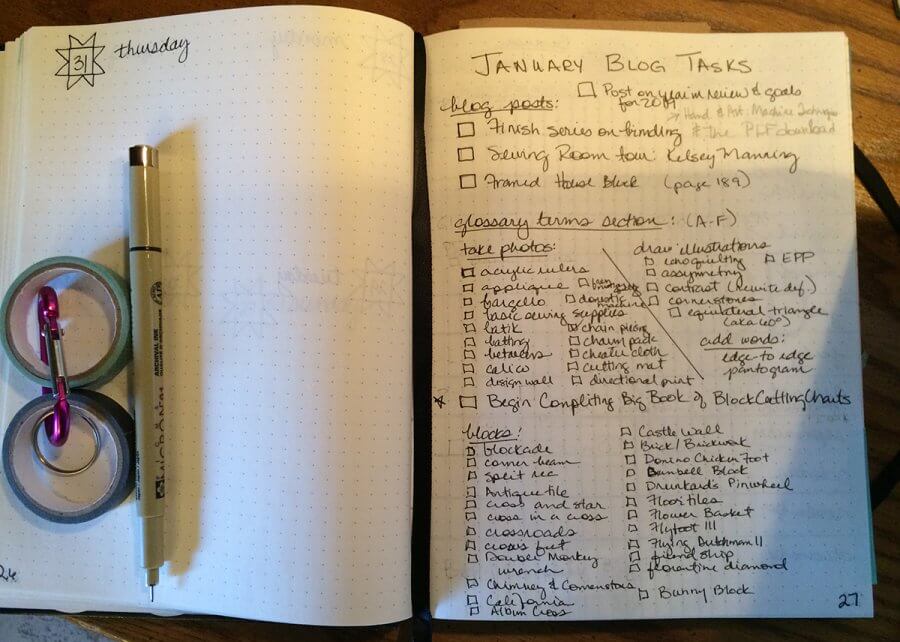 31 thursday
ARCHIVAL INK
MICRON
26
JANUARY BLOG TASKS
Post on year in review & goals
for 2019
blog posts:
→ Hand & Art: Machine Techniques
Finish series on binding & the PDF download
Sewing Room tour: Kelsey Manning
Framed House Block (page 189)
glossary terms section: (A-F)
take photos:
acrylic rulers
applique
bargello
domestic machine
basic sewing supplies
batik
chain piecing
batting
charm pack
betweens
cheater cloth
calico
cutting mat
design wall
directional print
draw illustrations
echo quilting
EPP
assymetry
contrast (rewrite def.)
cornerstones
equilateral triangle
(aka 60°)
add words:
edge to edge
pantogram
Begin Compliting Big Book of Block Cutting Charts
blocks:
blockade
corner beam
split rec
Antique tile
cross and star
cross in a cross
crossroads
crow's feet
Double Monkey
wrench
Chimney & Cornerstones
California
Album Cross
Castle Wall
Brick/Brickwork
Domino Chicken Foot
Dumbell Block
Drunkard's Pinwheel
Floor tiles
Flower Basket
Flyfoot III
Flying Dutchman II
friendship
florentine diamond
Bunny Block
27